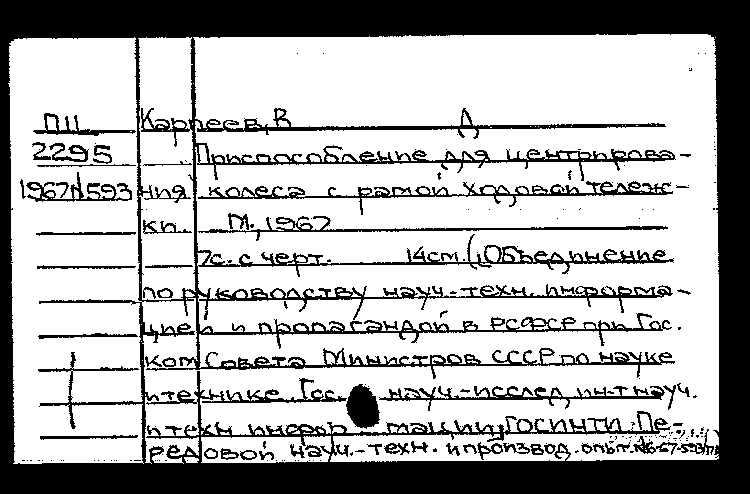 ПЦ Карпеев, В Д
2295 Приспособление для центрирова-
1967/593 ния колеса с рамой ходовой тележ-
ки. М., 1967
7с. с черт. 14см. (Объединение
по руководству науч.-техн. информа-
цией и пропагандой в РСФСР при Гос.
ком Совета Министров СССР по науке
и технике Гос. науч.-исслед. ин-т науч.
и техн инфор мации ГОСИНТИ. Пе-
редовой науч.-техн. и производ. опыт.